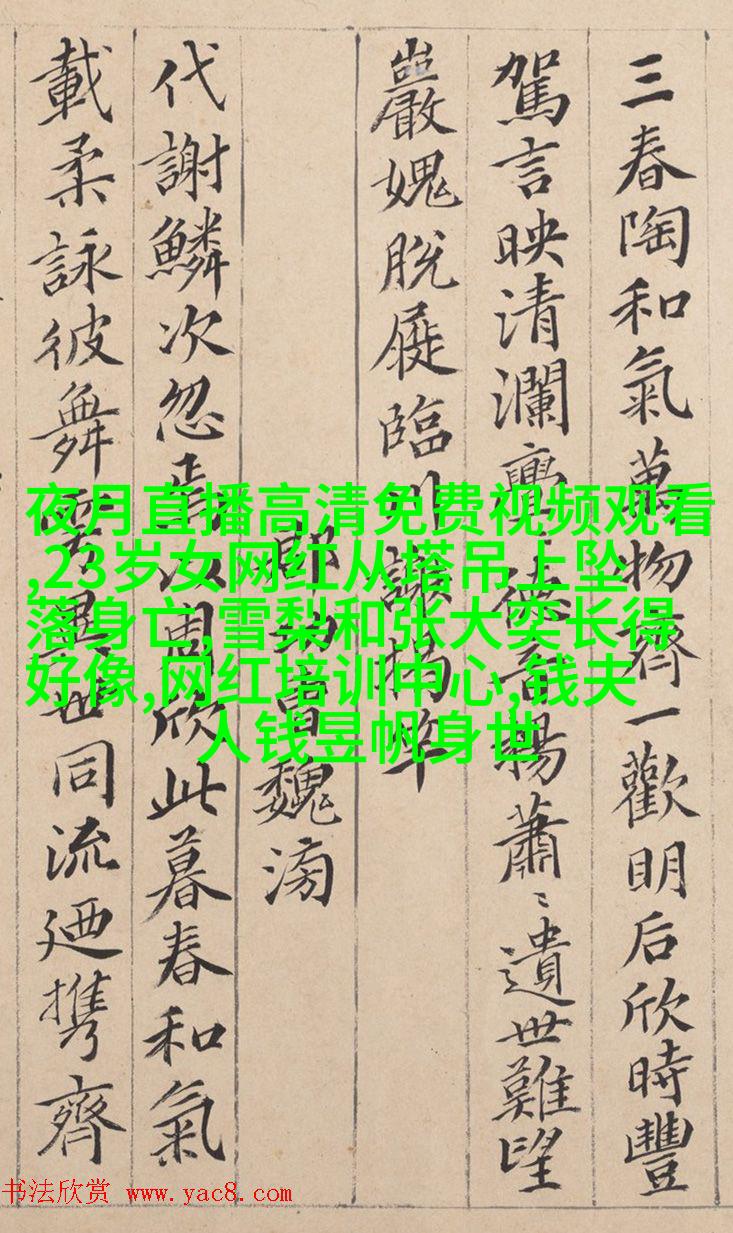 三春陶和氣萬物齊一歡明后欣時豐
駕言映清瀾亹〻德音暢蕭〻遺世難望
巖愧脫屣臨川謝揭竿
郎功曹魏滂
代謝鱗次忽焉以周欣此暮春和氣
載柔詠彼舞雩異世同流迺携齊
夜月直播高清免费视频观看
,23岁女网红从塔吊上坠
落身亡,雪梨和张大奕长得
好像,网红培训中心,钱夫
人钱昱帆身世
书法欣赏 www.yac8.com